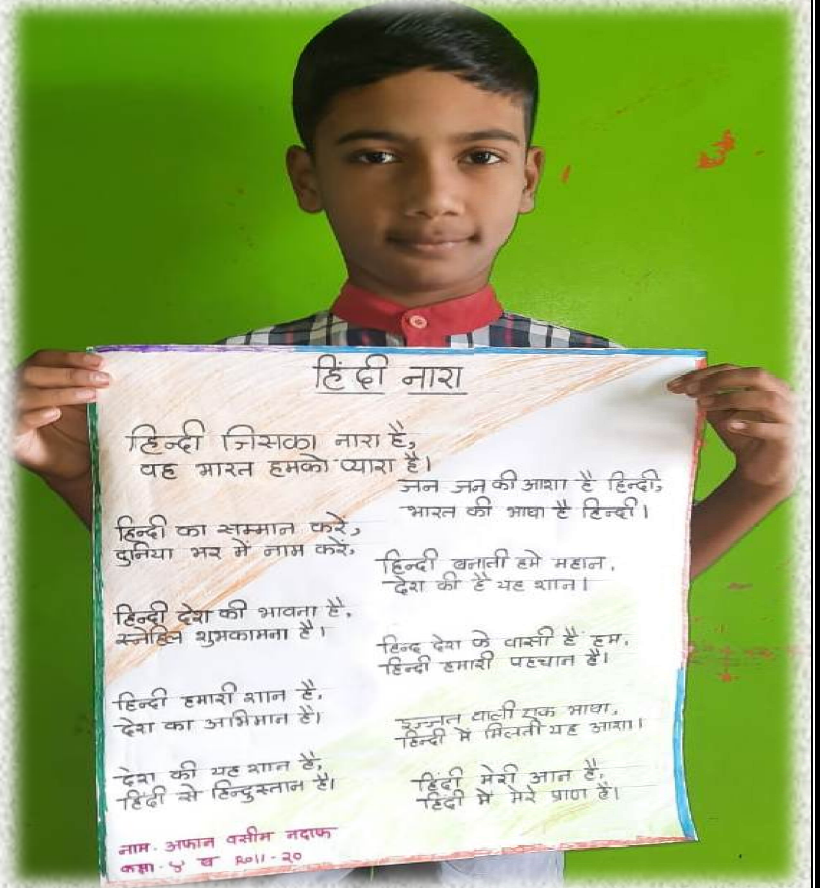 हिंदी नारा
हिन्दी जिसका नारा है,
वह भारत हमको प्यारा है।
हिन्दी का सम्मान करें,
दुनिया भर में नाम करें,
हिन्दी देश की भावना है,
स्नेहिल शुभकामना है।
हिन्दी हमारी शान है,
देश का अभिमान है।
देश की यह शान है,
हिंदी से हिन्दुस्तान है।
जन जन की आशा है हिन्दी,
भारत की भाषा है हिन्दी।
हिन्दी बनाती हमे महान,
देश की है यह शान।
हिन्द देश के वासी है हम,
हिन्दी हमारी पहचान है।
इज्जत वाली एक भाषा,
हिन्दी में मिलती यह आशा।
हिंदी मेरी आन है,
हिंदी में मेरे प्राण है।
नाम - अफान वसीम नदाफ
कक्षा - ४ ब Roll - 20